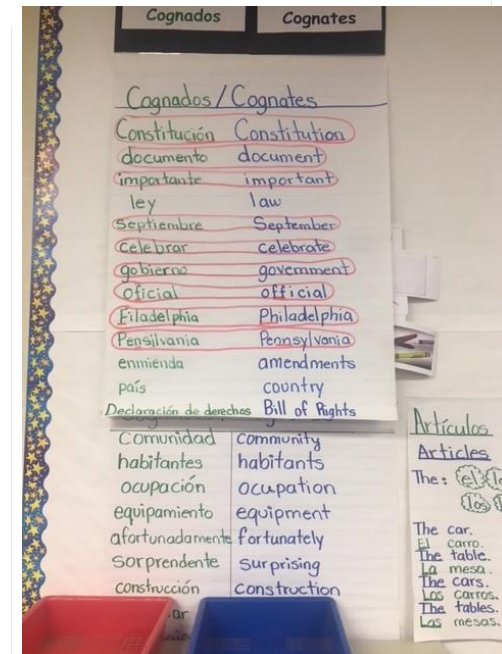 Cognados Cognates
Cognados / Cognates
Constitución Constitution
documento document
importante important
ley law
Septiembre September
celebrar celebrate
gobierno government
oficial official
Filadelphia Philadelphia
Pensilvania Pennsylvania
enmienda amendments
país country
Declaración de derechos Bill of Rights
Comunidad community
habitantes habitants
ocupación ocupation
equipamiento equipment
afortunadamente fortunately
sorprendente surprising
construcción construction
Artículos
Articles
The: el
los
The car.
El carro.
The table.
La mesa.
The cars.
Los carros.
The tables.
Las mesas.